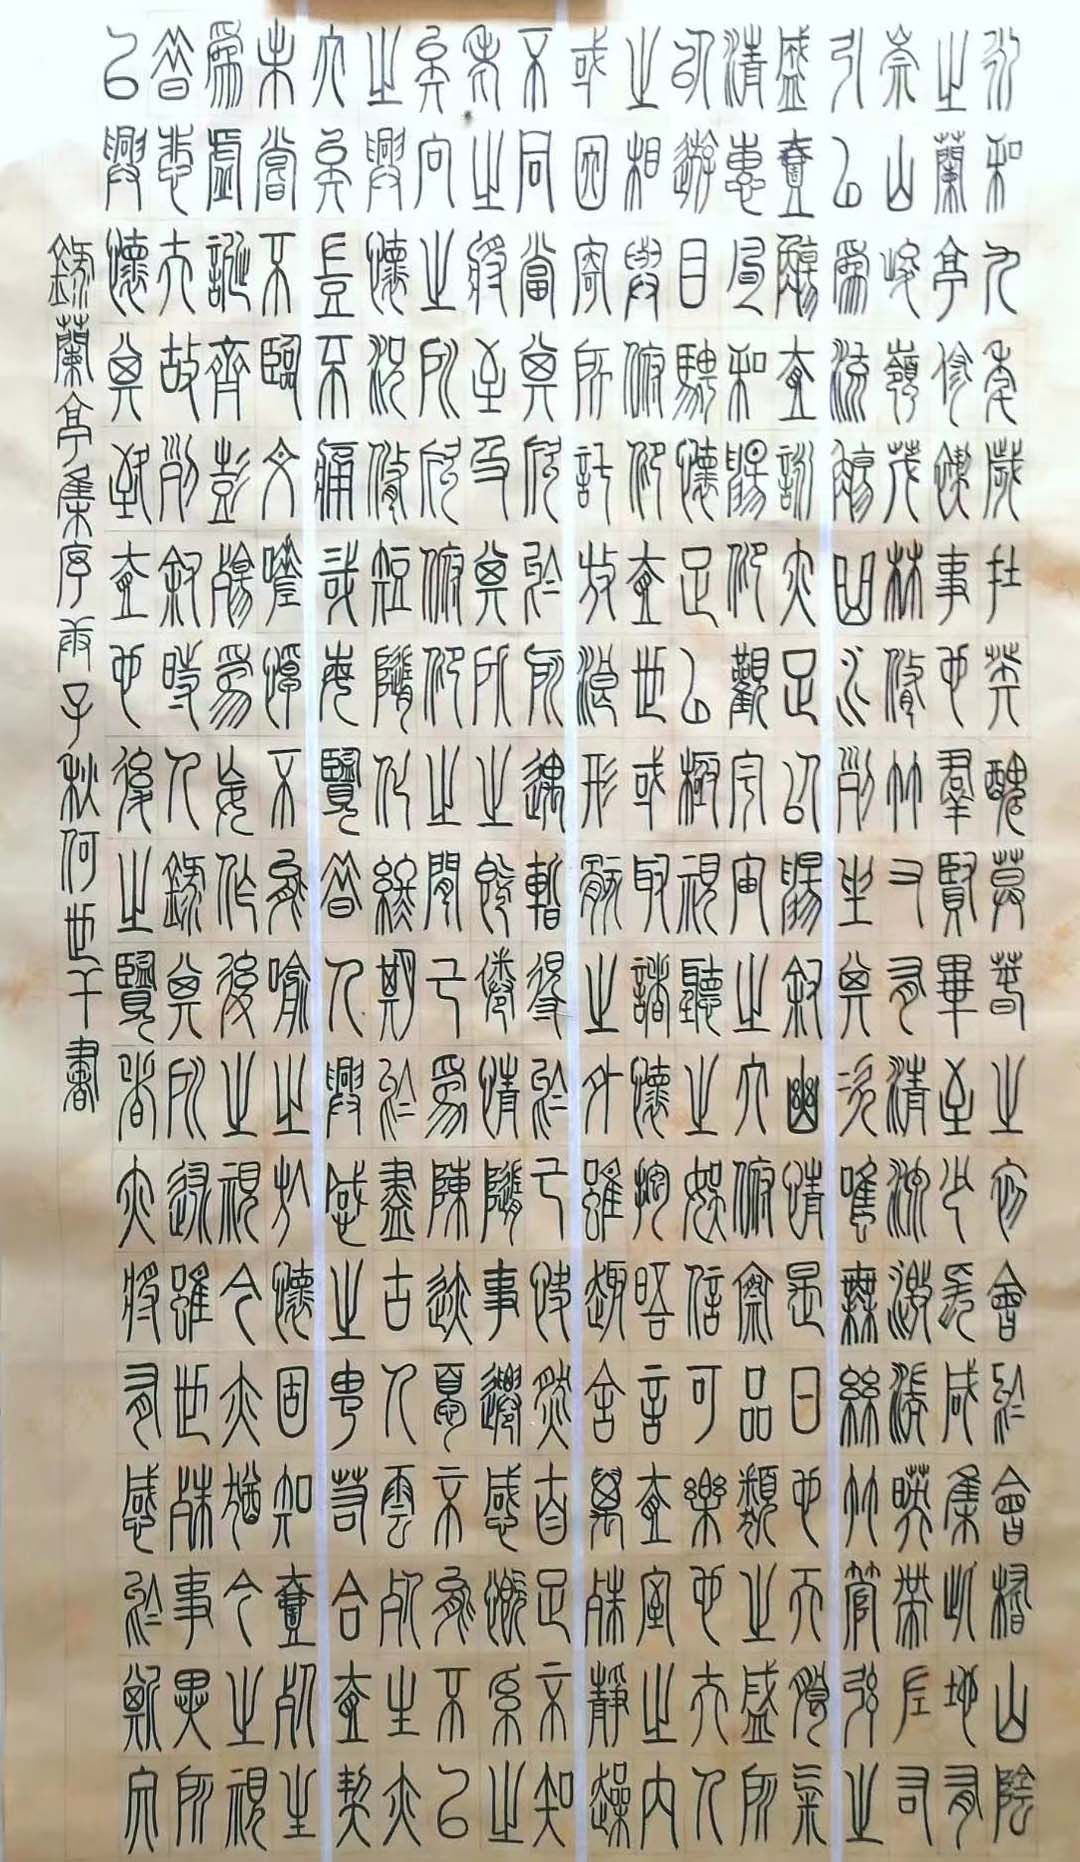 永和九年歲在癸醜莫春之初會於會稽山陰
之蘭亭修禊事也群賢畢至少長咸集此地有
崇山峻嶺茂林修竹又有清流激湍映帶左右
引以為流觴曲水列坐其次雖無絲竹管弦之
盛壹觴壹詠亦足以暢敘幽情是日也天朗氣
清惠風和暢仰觀宇宙之大俯察品類之盛所
以遊目騁懷足以極視聽之娛信可樂也夫人
之相與俯仰壹世或取諸懷抱晤言壹室之內
或因寄所託放浪形骸之外雖趣舍萬殊靜躁
不同當其欣於所遇暫得於己快然自足不知
老之將至及其所之既倦情隨事遷感慨系之
矣向之所欣俯仰之間已為陳跡猶不能不以
之興懷況修短隨化終期於盡古人雲死生亦
大矣豈不痛哉每覽昔人興感之由若合壹契
未嘗不臨文嗟悼不能喻之於懷固知壹死生
為虛誕齊彭殤為妄作後之視今亦猶今之視
昔悲夫故列敘時人錄其所述雖世殊事異所
以興懷其致壹也後之覽者亦將有感於斯文
錄蘭亭集序庚子秋何世千書